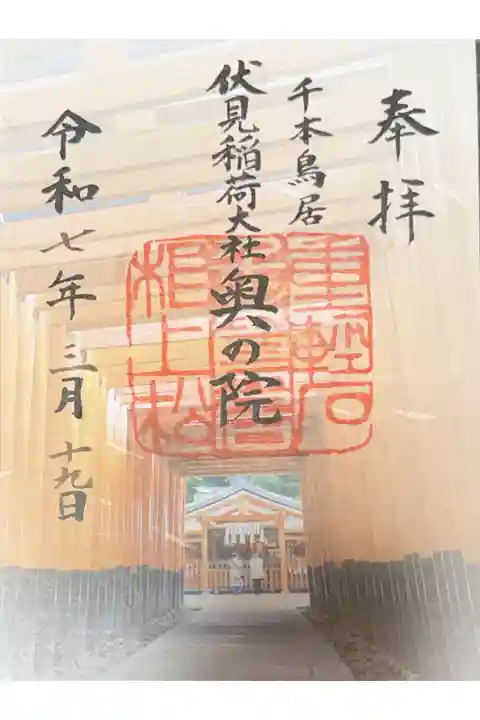 奉拝
千本鳥居
伏見稲荷大社奥の院
令和七年三月十九日
重軽石
根上松